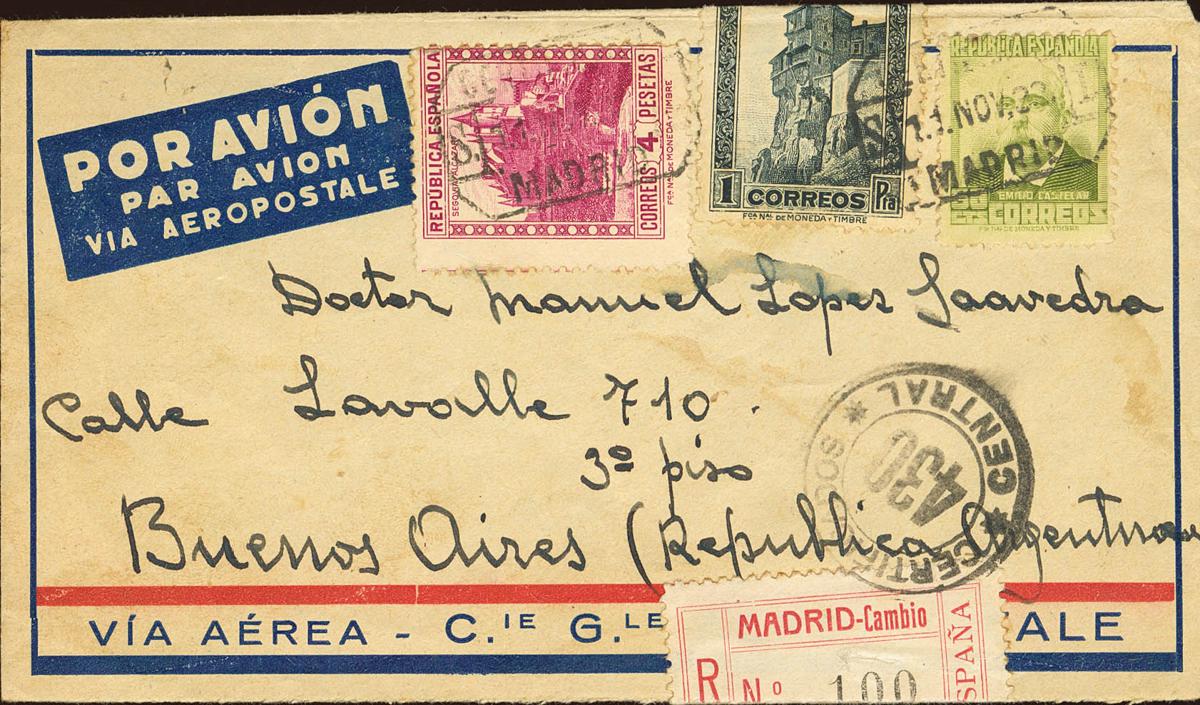 POR AVIÓN
PAR AVION
VIA AEROPOSTALE
REPUBLICA ESPAÑOLA
CORREOS 4 PESETAS
FCA NAL DE MONEDA Y TIMBRE
MADRID
1 CORREOS Pta
FCA NAL DE MONEDA Y TIMBRE
REPUBLICA ESPAÑOLA
NOV.
MADRID
EMILIO CASTELAR
CTS CORREOS
FCA NAL DE MONEDA Y TIMBRE
Doctor Manuel Lopez Saavedra
Calle Lavalle 710.
3º piso
Buenos Aires (Republica Argentina)
CENTRAL
430
CERTIF
DOS
VÍA AÉREA - C.IE G.LE
ALE
MADRID-Cambio
R Nº 100
ESPAÑA